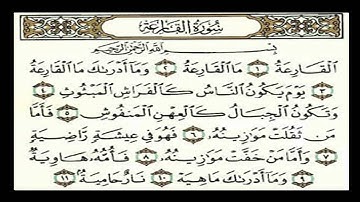 سُورَةُ القَارِعَة
بِسْمِ اللَّهِ الرَّحْمَٰنِ الرَّحِيمِ
الْقَارِعَةُ ١ مَا الْقَارِعَةُ ٢ وَمَا أَدْرَاكَ مَا الْقَارِعَةُ
٣ يَوْمَ يَكُونُ النَّاسُ كَالْفَرَاشِ الْمَبْثُوثِ ٤
وَتَكُونُ الْجِبَالُ كَالْعِهْنِ الْمَنْفُوشِ ٥ فَأَمَّا
مَنْ ثَقُلَتْ مَوَازِينُهُ ٦ فَهُوَ فِي عِيشَةٍ رَاضِيَةٍ
٧ وَأَمَّا مَنْ خَفَّتْ مَوَازِينُهُ ٨ فَأُمُّهُ هَاوِيَةٌ
٩ وَمَا أَدْرَاكَ مَا هِيَهْ ١٠ نَارٌ حَامِيَةٌ ١١